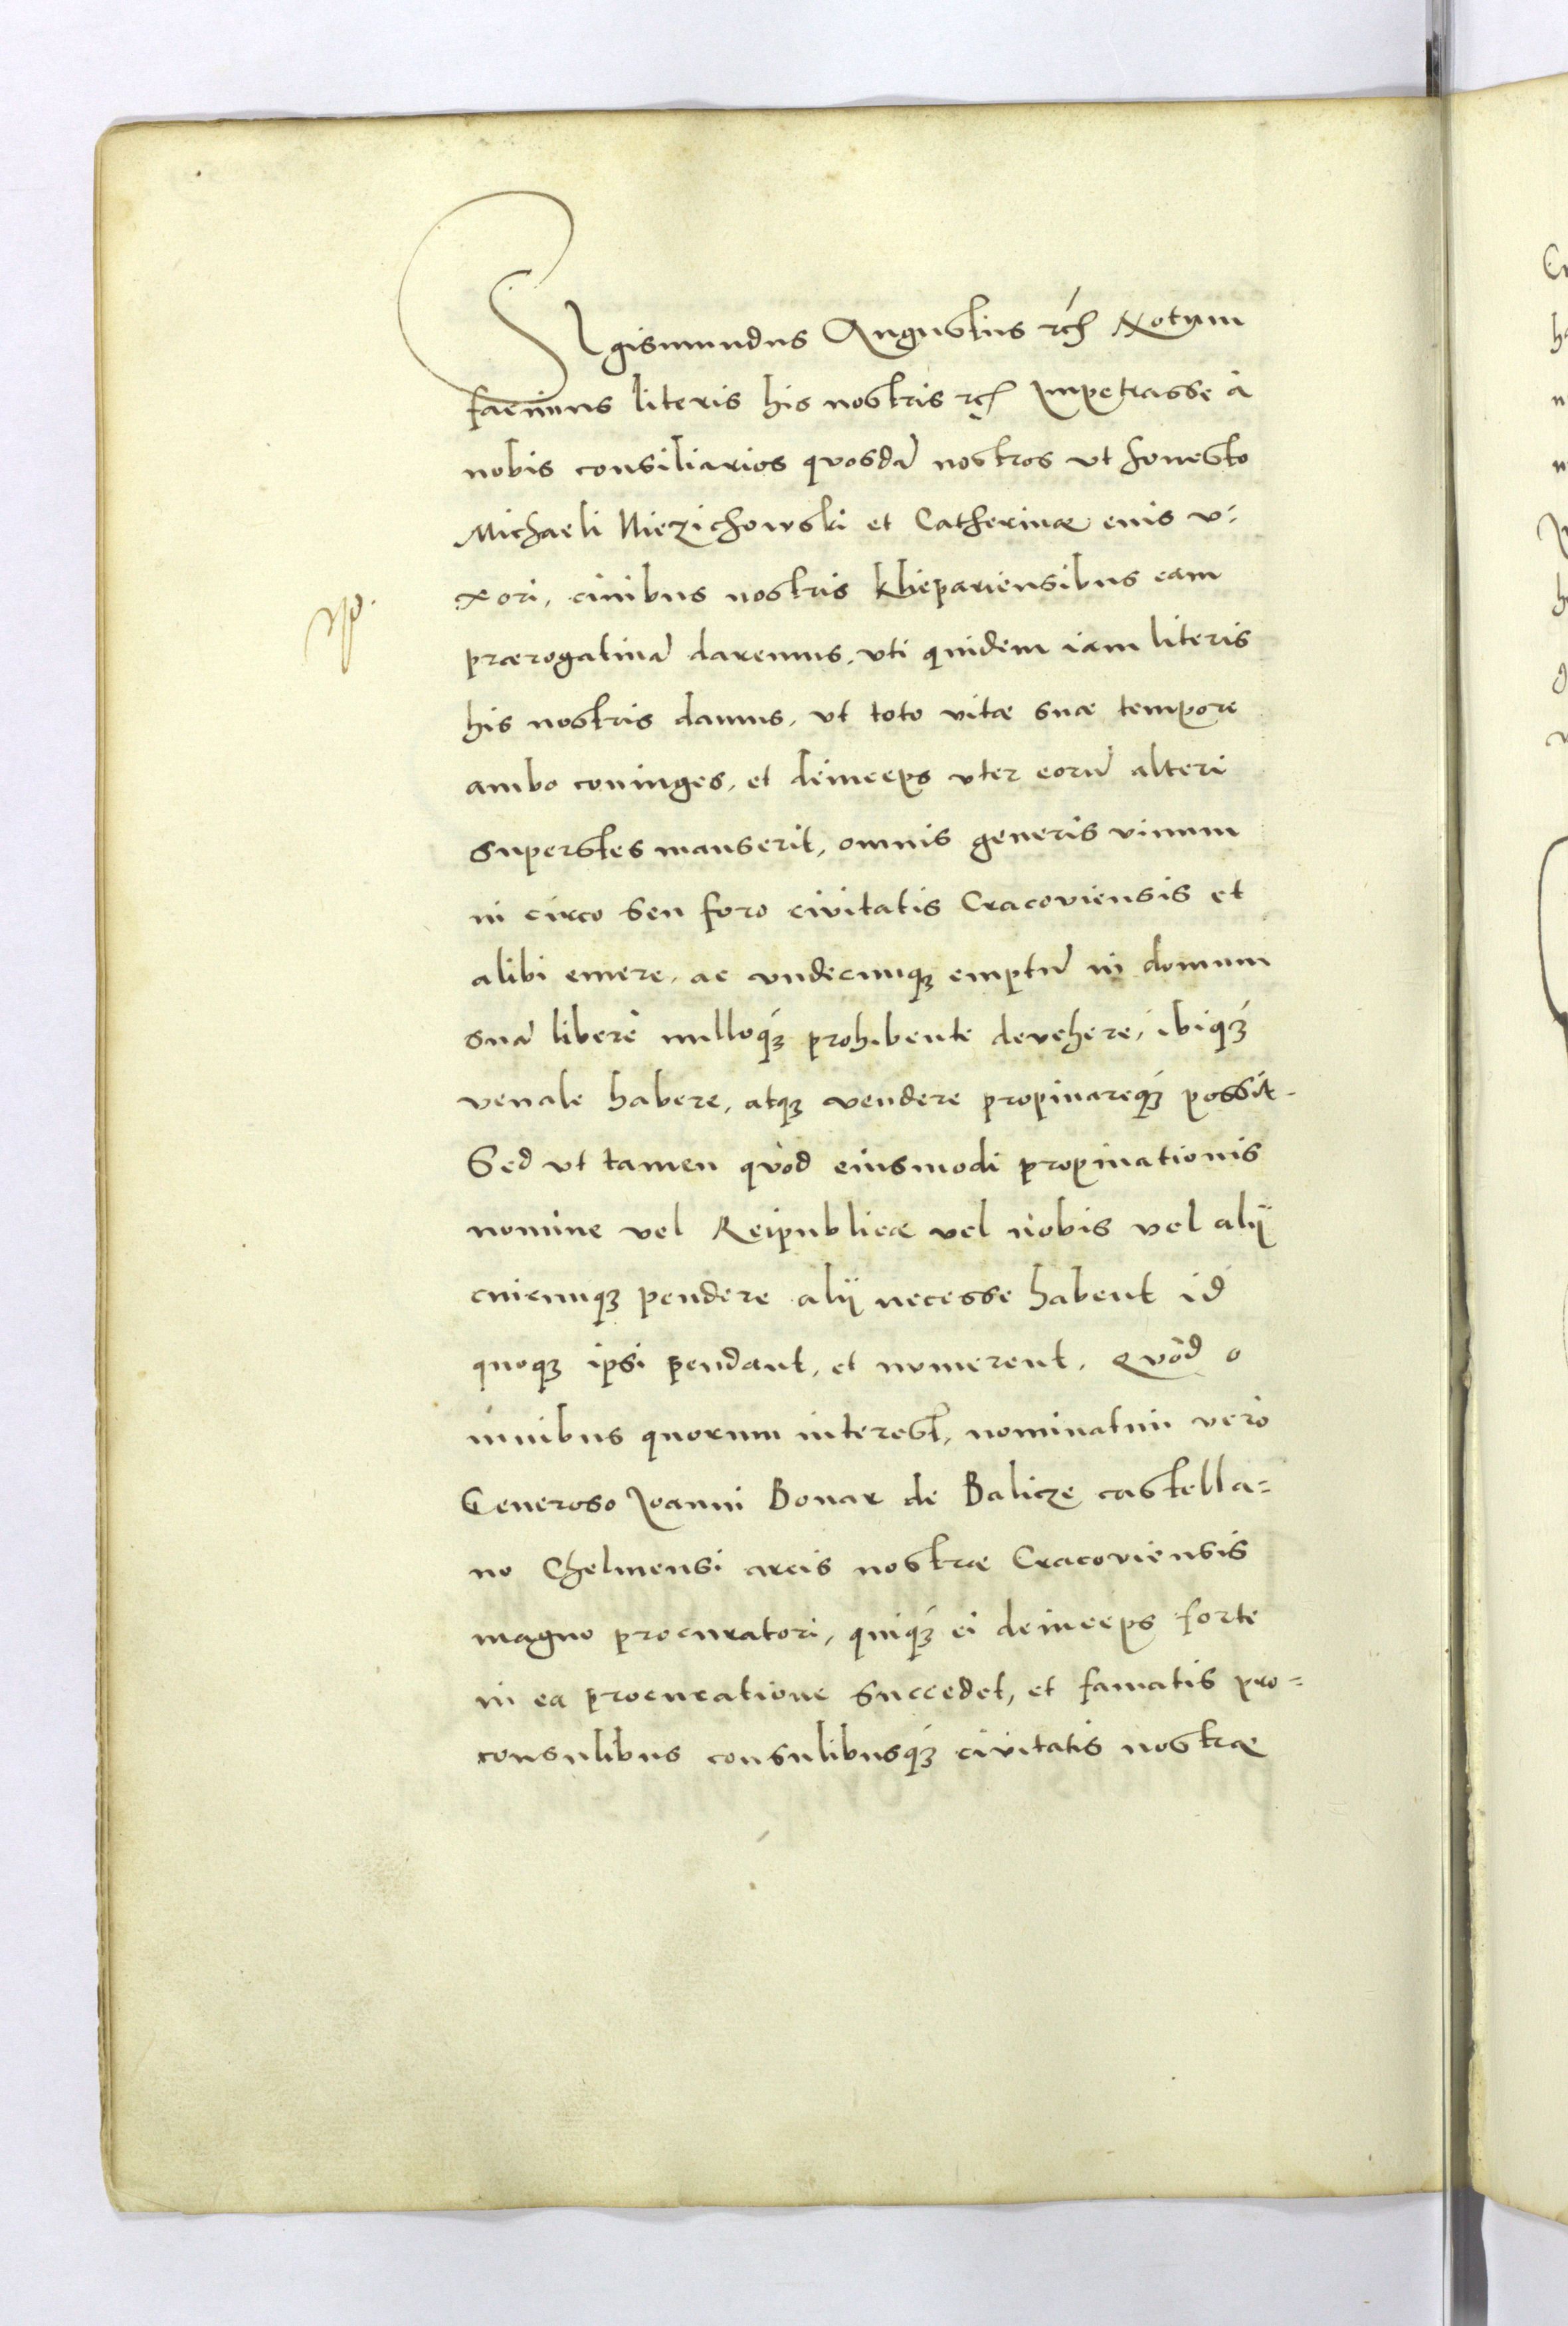 SIgismundus Augustus rc̄ Notum
facimus literis his nostris rc̄ Impetrasse à
nobis consiliarios quosdā nostros ut honesto
Michaeli Niezichowski et Catherinæ euis v-
xori, ciuibus nostris Khlepariensibus eam
prærogatiuā daremus, vti quidem iam literis
his nostris damus, ut toto vitæ suæ tempore
ambo coniuges, et deinceps vter eorū alteri
superstes manserit, omnis generis vinum
in circo seu foro civitatis Cracoviensis et
alibi emere, ac undecunqꝫ emptū in domum
suā liberè nulloqꝫ prohibente devehere, ibiqꝫ
venale habere, atqꝫ vendere propinareqꝫ possit.
Sed ut tamen quòd eiusmodi propinationis
nomine vel Reipublicæ vel nobis vel alij
cuicunqꝫ pendere alij necesse habent id
quoqꝫ ipsi pendant, et numerent. Quòd o
mnibus quorum interest, nominatim verò
Generoso Joanni Bonar de Balicze castella=
no Chelmensi arcis nostræ Cracoviensis
magno procuratori, quiqꝫ ei deinceps forte
in ea procuratione succedet, et famatis pro=
consulibus consulibusqꝫ civitatis nostræ